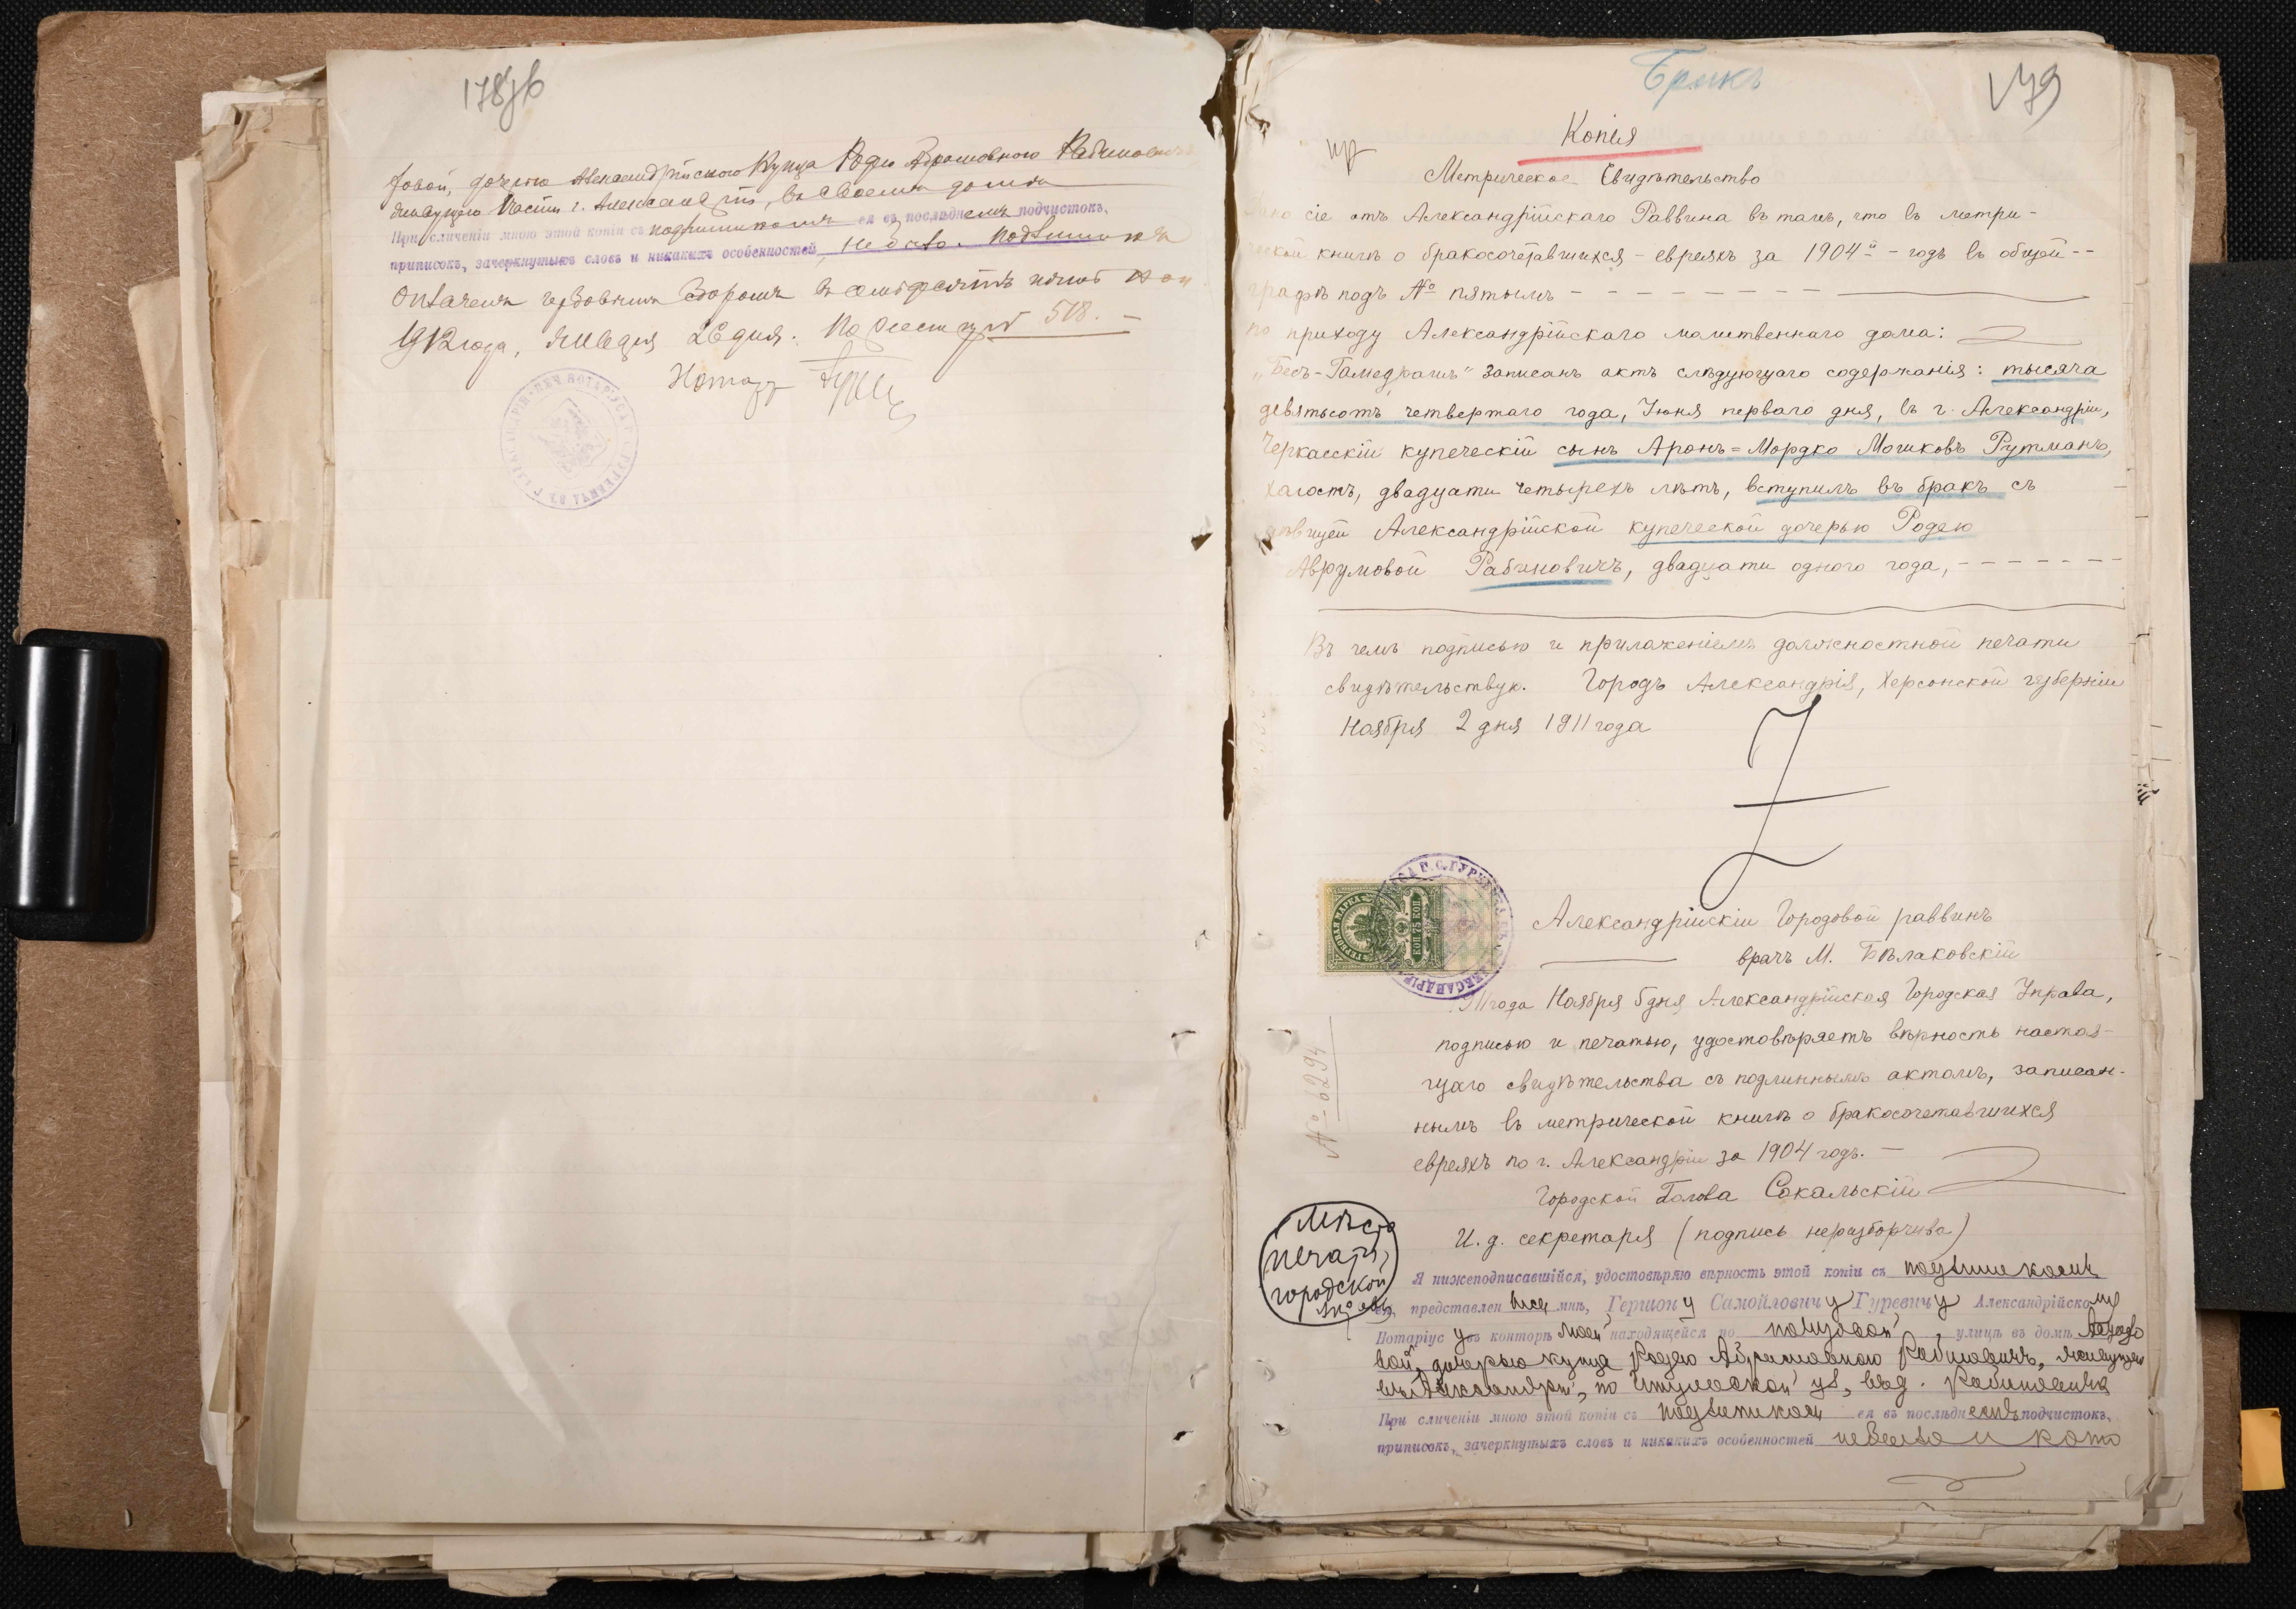 178об
ковой, дочерью Александрійскаго Купца Родею Абрамовною Рабиновичъ
живущею г. Александріи, въ своемъ домѣ
При сличеніи мною этой копіи съ подлинникомъ ея въ послѣднемъ подчистокъ,
приписокъ, зачеркнутыхъ словъ и никакихъ особенностей не было. Подлинникъ
оплаченъ гербовымъ сборомъ
1912 года, Января 26 дня. По реестру № 518.
Нотар
Брикъ
179
Копія
Метрическое Свидѣтельство
Дано сіе отъ Александрійскаго Раввина въ томъ, что въ метри-
ческой книгѣ о бракосочетавшихся - евреяхъ за 1904й - годъ въ общей --
графѣ подъ № пятымъ
по приходу Александрійскаго молитвеннаго дома:
„Бесъ-Гамедрашъ" записанъ актъ слѣдующаго содержанія: тысяча
девятьсотъ четвертаго года, Іюня перваго дня, въ г. Александріи,
Черкасскій купеческій сынъ Аронъ=Мордко Мошковъ Рутманъ,
холостъ, двадцати четырехъ лѣтъ, вступилъ въ бракъ съ
дѣвицей Александрійской купеческой дочерью Родею
Аврумовой Рабиновичъ, двадцати одного года,
Въ чемъ подписью и приложеніемъ должностной печати
свидѣтельствую. Городъ Александрія, Херсонской губерніи
Ноября 2 дня 1911 года
ГЕРБОВАЯ МАРКА
75 КОП
Александрійскій Городовой раввинъ
врачъ М. Бѣлаковскій
1911 года Ноября 5 дня Александрійская Городская Управа,
подписью и печатью, удостовѣряетъ вѣрность настоя-
щаго свидѣтельства съ подлиннымъ актомъ, записан-
нымъ въ метрической книгѣ о бракосочетавшихся
евреяхъ по г. Александріи за 1904 годъ. -
№ 6294
Городской Голова Сокальскій
И. д. секретаря (подпись неразборчива)
Мѣсто
печати
городской
управы
Я нижеподписавшійся, удостовѣряю вѣрность этой копіи съ подлинникомъ
его, представлен мнѣ, Гершону Самойловичу Гуревичу Александрійскому
Нотаріусу въ конторѣ моей находящейся по улицѣ въ домѣ
вой, дочерью купца Родею Абрамовною Рабиновичъ, живущей
въ Александріи, по ул., въ д. Рабиновича
При сличеніи мною этой копіи съ подлинникомъ ея въ послѣднемъ подчистокъ,
приписокъ, зачеркнутыхъ словъ и никакихъ особенностей не было